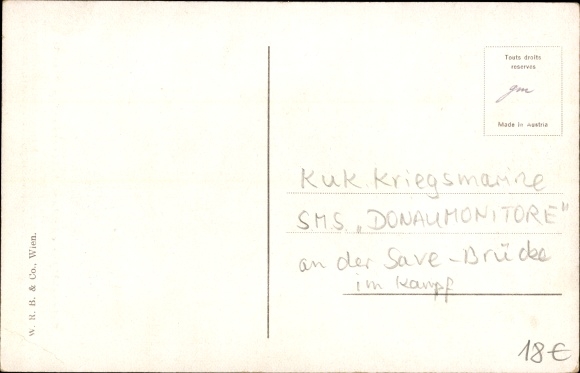 Touts droits
reserves
gm
Made in Austria
KuK Kriegsmarine
SMS "DONAUMONITORE"
an der Save-Brücke
im Kampf
W. R. B. & Co., Wien.
18€